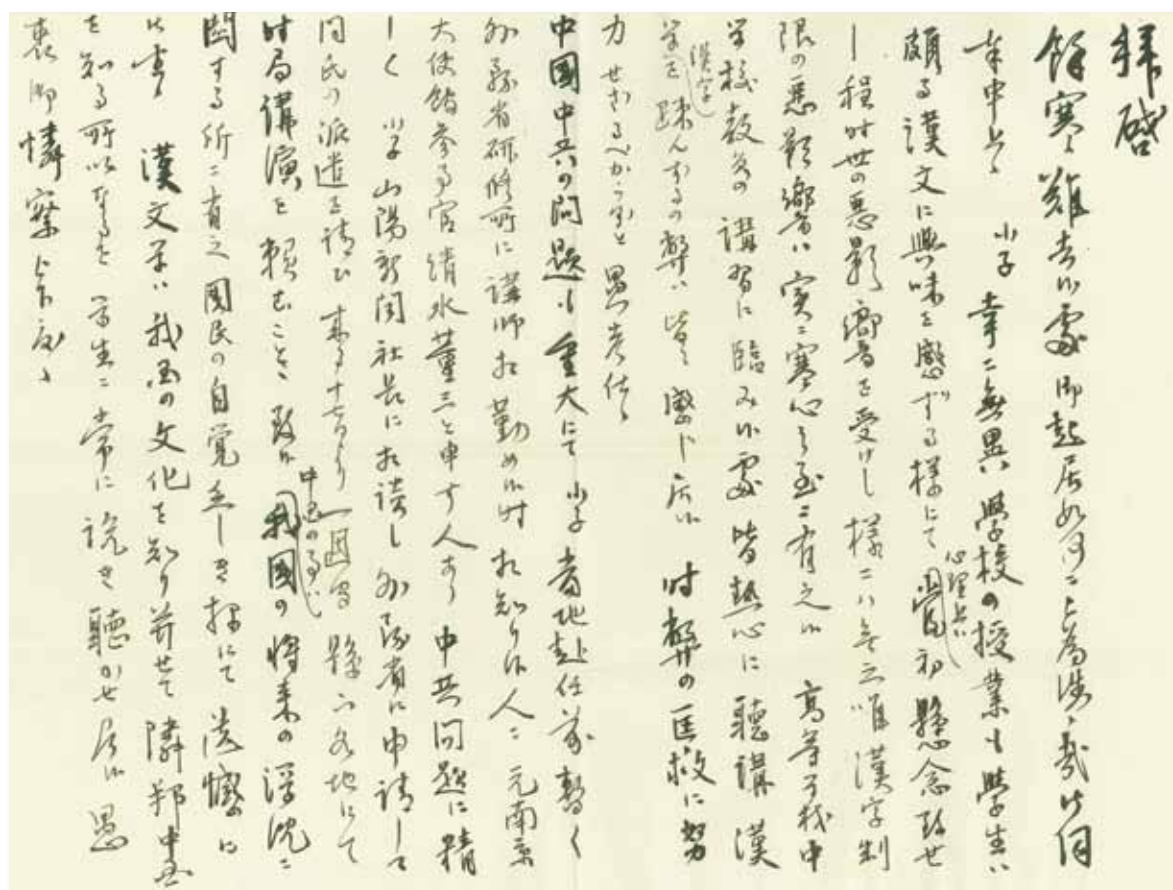 拝啓
餘寒難去候處御起居如何ニ被為渉候哉御伺
奉申上候 小子幸ニ無異 學校の授業も學生ハ
頗る漢文に興味を感ずる様にて心理上ハ當初懸念致せ
し程時世の悪影響を受けし様ニハ無之唯漢字制
限の悪影響ハ実ニ寒心之至ニ有之候 高等学校中
学校教員の講習に臨み候處皆熱心に聴講漢
学漢字を疎んずるの弊ハ皆感じ居候 時弊の匡救に努
力せざるべからずと愚考仕候
中國中共の問題も重大にて 小子當地赴任前暫く
外務省研修所に講師相勤め候時相知り候人ニ元南京
大使館参事官清水董三と申す人あり 中共問題に精
しく 小子山陽新聞社長に相談し外務省に申請して
同氏の派遣を請ひ来る十七日より一週間縣下各地にて
時局講演中国の事を頼むこと致候 我國の将来の浮沈ニ
関する所ニ有之國民の自覚乏しき様にて浩歎ニ
候 漢文学ハ我国の文化を知り并せて隣邦中国
を知る所以なるを学生ニ常に説き聴かせ居候 愚
衷御憐察被下度候